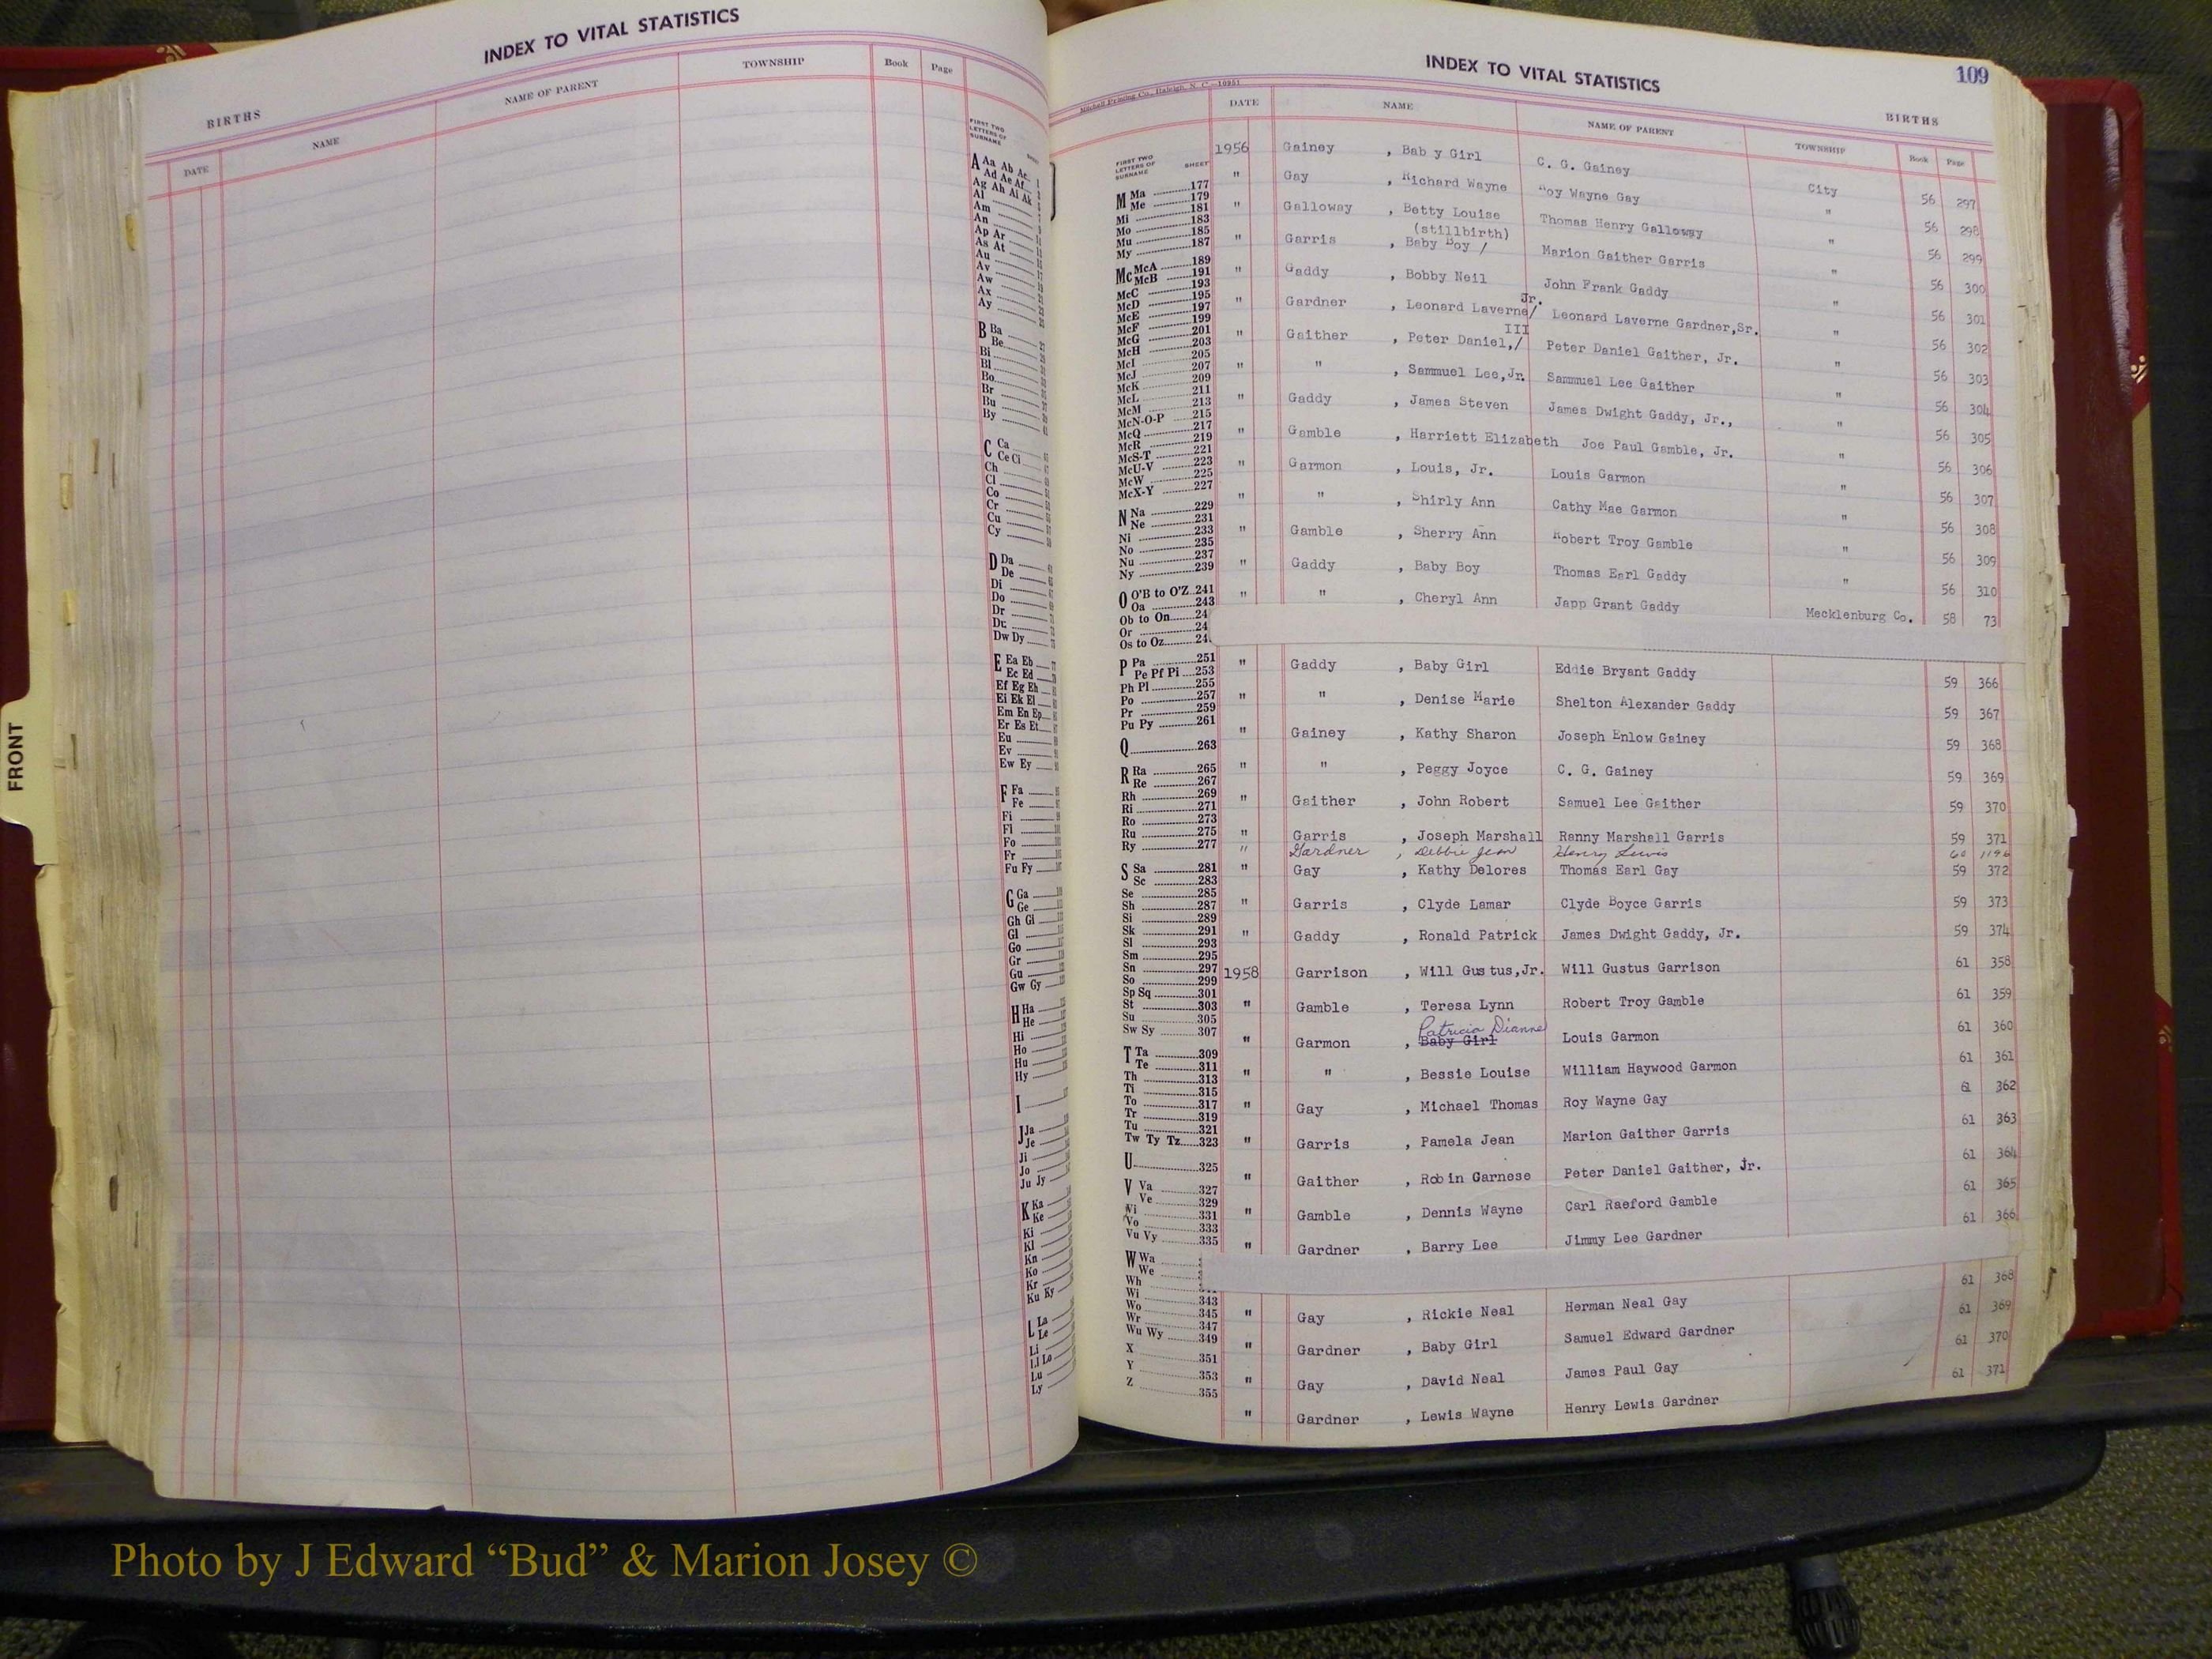 INDEX TO VITAL STATISTICS
BIRTHS
DATE NAME NAME OF PARENT TOWNSHIP Book Page
FIRST TWO LETTERS OF SURNAME
A Aa Ab Ac
Ad Ae Af
Ag Ah Ai Ak
Al
Am
An
Ap Ar
As At
Au
Av
Aw
Ax
Ay
B Ba
Be
Bi
Bl
Bo
Br
Bu
By
C Ca
Ce Ci
Ch
Cl
Co
Cr
Cu
Cy
D Da
De
Di
Do
Dr
Du
Dw Dy
E Ea Eb
Ec Ed
Ef Eg Eh
Ei Ek El
Em En Ep
Er Es Et
Eu
Ev
Ew Ey
F Fa
Fe
Fi
Fl
Fo
Fr
Fu Fy
G Ga
Ge
Gh Gi
Gl
Go
Gr
Gu
Gw Gy
H Ha
He
Hi
Ho
Hu
Hy
I
J Ja
Je
Ji
Jo
Ju Jy
K Ka
Ke
Ki
Kl
Kn
Ko
Kr
Ku Ky
L La
Le
Li
Ll Lo
Lu
Ly
FRONT
INDEX TO VITAL STATISTICS
109
Mitchell Printing Co., Raleigh, N. C.—10951
BIRTHS
DATE NAME NAME OF PARENT TOWNSHIP Book Page
FIRST TWO LETTERS OF SURNAME SHEET
M Ma 177
Me 179
Mi 181
Mo 183
Mu 185
My 187
Mc McA 189
McB 191
McC 193
McD 195
McE 197
McF 199
McG 201
McH 203
McI 205
McJ 207
McK 209
McL 211
McM 213
McN-O-P 215
McQ 217
McR 219
McS-T 221
McU-V 223
McW 225
McX-Y 227
N Na 229
Ne 231
Ni 233
No 235
Nu 237
Ny 239
O O'B to O'Z 241
Oa 243
Ob to On 24
Or 24
Os to Oz 24
P Pa 251
Pe Pf Pi 253
Ph Pl 255
Po 257
Pr 259
Pu Py 261
Q 263
R Ra 265
Re 267
Rh 269
Ri 271
Ro 273
Ru 275
Ry 277
S Sa 281
Sc 283
Se 285
Sh 287
Si 289
Sk 291
Sl 293
Sm 295
Sn 297
So 299
Sp Sq 301
St 303
Su 305
Sw Sy 307
T Ta 309
Te 311
Th 313
Ti 315
To 317
Tr 319
Tu 321
Tw Ty Tz 323
U 325
V Va 327
Ve 329
Vi 331
Vo 333
Vu Vy 335
W Wa
We
Wh
Wi 343
Wo 345
Wr 347
Wu Wy 349
X 351
Y 353
Z 355
1956 Gainey , Baby Girl C. G. Gainey City 56 297
" Gay , Richard Wayne Roy Wayne Gay " 56 298
" Galloway , Betty Louise Thomas Henry Galloway " 56 299
(stillbirth)
" Garris , Baby Boy / Marion Gaither Garris " 56 300
" Gaddy , Bobby Neil John Frank Gaddy " 56 301
Jr.
" Gardner , Leonard Laverne/ Leonard Laverne Gardner,Sr. " 56 302
III
" Gaither , Peter Daniel,/ Peter Daniel Gaither, Jr. " 56 303
" " , Sammuel Lee,Jr. Sammuel Lee Gaither " 56 304
" Gaddy , James Steven James Dwight Gaddy, Jr., " 56 305
" Gamble , Harriett Elizabeth Joe Paul Gamble, Jr. " 56 306
" Garmon , Louis, Jr. Louis Garmon " 56 307
" " , Shirly Ann Cathy Mae Garmon " 56 308
" Gamble , Sherry Ann Robert Troy Gamble " 56 309
" Gaddy , Baby Boy Thomas Earl Gaddy " 56 310
" " , Cheryl Ann Japp Grant Gaddy Mecklenburg Co. 58 73
" Gaddy , Baby Girl Eddie Bryant Gaddy 59 366
" " , Denise Marie Shelton Alexander Gaddy 59 367
" Gainey , Kathy Sharon Joseph Enlow Gainey 59 368
" " , Peggy Joyce C. G. Gainey 59 369
" Gaither , John Robert Samuel Lee Gaither 59 370
" Garris , Joseph Marshall Ranny Marshall Garris 59 371
" Gardner , Debbie Jean Henry Lewis 60 1196
" Gay , Kathy Delores Thomas Earl Gay 59 372
" Garris , Clyde Lamar Clyde Boyce Garris 59 373
" Gaddy , Ronald Patrick James Dwight Gaddy, Jr. 59 374
1958 Garrison , Will Gustus,Jr. Will Gustus Garrison 61 358
" Gamble , Teresa Lynn Robert Troy Gamble 61 359
Patricia Dianne
" Garmon , Baby Girl Louis Garmon 61 360
" " , Bessie Louise William Haywood Garmon 61 361
" Gay , Michael Thomas Roy Wayne Gay 61 362
" Garris , Pamela Jean Marion Gaither Garris 61 363
" Gaither , Robin Garnese Peter Daniel Gaither, Jr. 61 364
" Gamble , Dennis Wayne Carl Raeford Gamble 61 365
" Gardner , Barry Lee Jimmy Lee Gardner 61 366
" Gay , Rickie Neal Herman Neal Gay 61 368
" Gardner , Baby Girl Samuel Edward Gardner 61 369
" Gay , David Neal James Paul Gay 61 370
" Gardner , Lewis Wayne Henry Lewis Gardner 61 371
Photo by J Edward “Bud” & Marion Josey ©